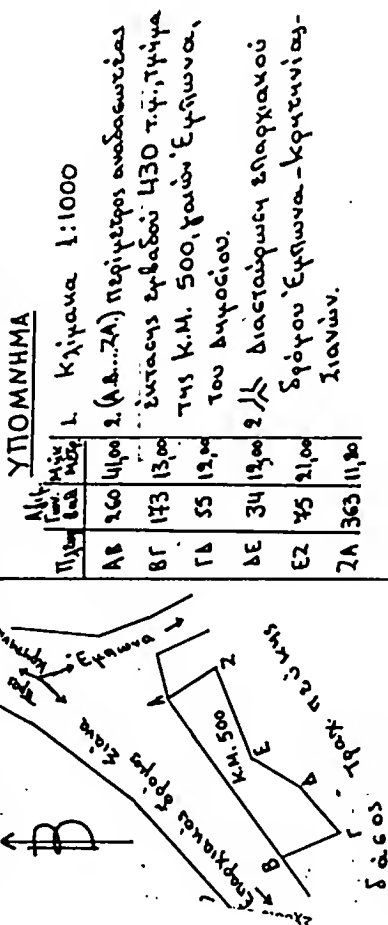 ΥΠΟΜΝΗΜΑ
Πλευρ Αζιμ. Γων. βαθ Μήκ μέτρ.
ΑΒ 260 41,00
ΒΓ 173 13,00
ΓΔ 55 12,00
ΔΕ 34 12,00
ΕΖ 75 21,00
ΖΑ 363 11,80
1. Κλίμακα 1:1000
2. (Α.Β....ΖΑ) Περίμετρος αναδασωτέας
έκτασης εμβαδού 430 τ.μ., τμήμα
της Κ.Μ. 500, γαιών Έμπωνα,
του Δημοσίου.
2 Διασταύρωση επαρχιακού
δρόμου Έμπωνα-Κρητηνίας-
Σιανών.
Β
Προς
Έμπωνα
Επαρχιακός δρόμος Σιάνα
Α
Ζ
Κ.Μ. 500
Ε
Β
Δ
Γ
δάσος τραχ. πεύκης